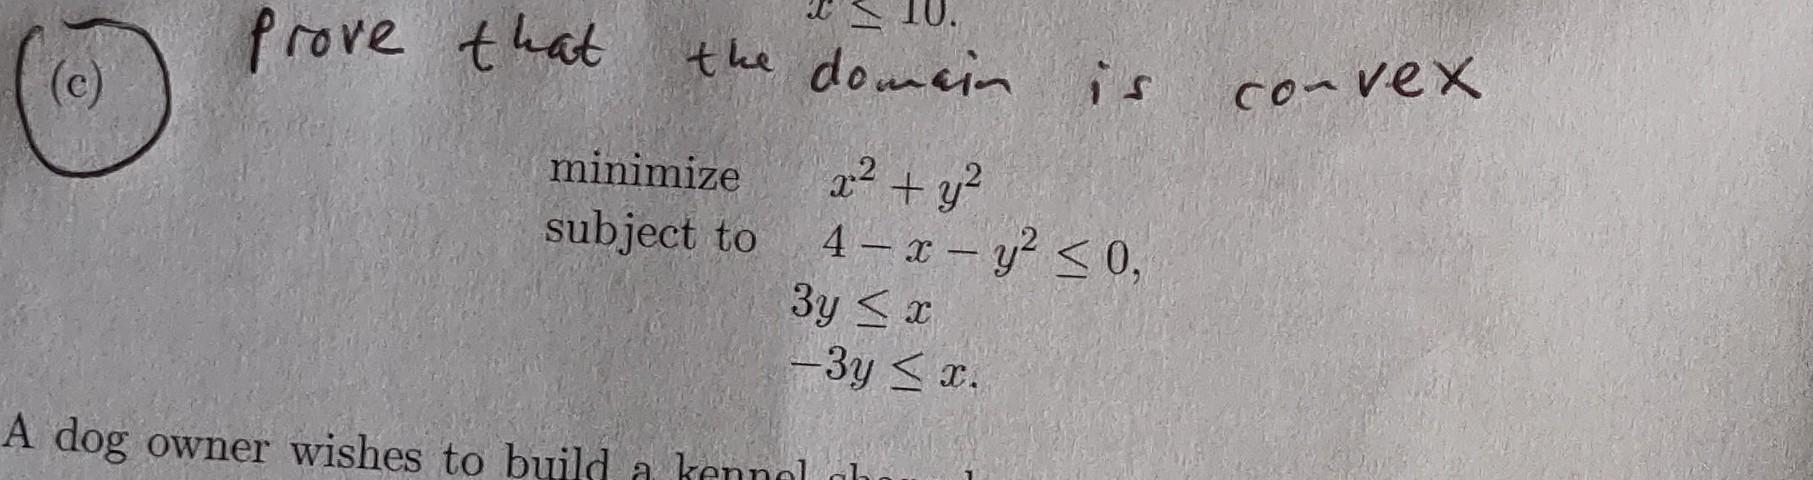 x ≤ 10.
(c) Prove that the domain is convex
minimize x² + y²
subject to 4 − x − y² ≤ 0,
3y ≤ x
−3y ≤ x.
A dog owner wishes to build a kennel